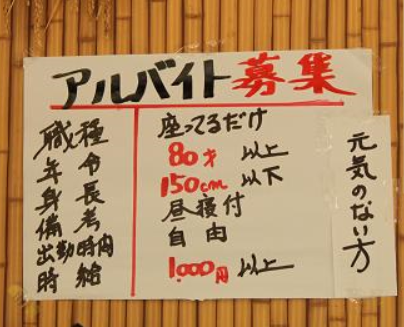 アルバイト募集
職種 座ってるだけ
年令 80才 以上
身長 150cm 以下
備考 昼寝付
出勤時間 自由
時給 1,000円 以上
元気のない方